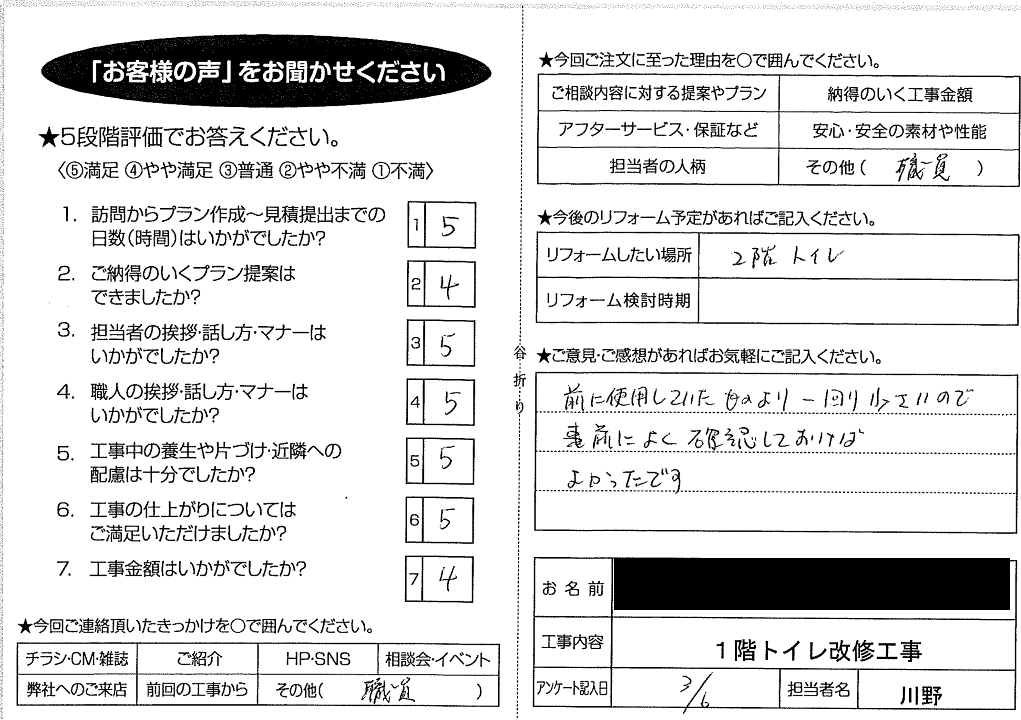 「お客様の声」をお聞かせください
★5段階評価でお答えください。
〈⑤満足 ④やや満足 ③普通 ②やや不満 ①不満〉
1. 訪問からプラン作成〜見積提出までの
日数(時間)はいかがでしたか?
1 5
2. ご納得のいくプラン提案は
できましたか?
2 4
3. 担当者の挨拶・話し方・マナーは
いかがでしたか?
3 5
4. 職人の挨拶・話し方・マナーは
いかがでしたか?
4 5
5. 工事中の養生や片づけ・近隣への
配慮は十分でしたか?
5 5
6. 工事の仕上がりについては
ご満足いただけましたか?
6 5
7. 工事金額はいかがでしたか?
7 4
★今回ご連絡頂いたきっかけを○で囲んでください。
チラシ・CM・雑誌 ご紹介 HP・SNS 相談会・イベント
弊社へのご来店 前回の工事から その他( 職員 )
谷折り
★今回ご注文に至った理由を○で囲んでください。
ご相談内容に対する提案やプラン 納得のいく工事金額
アフターサービス・保証など 安心・安全の素材や性能
担当者の人柄 その他( 職員 )
★今後のリフォーム予定があればご記入ください。
リフォームしたい場所 2階トイレ
リフォーム検討時期
★ご意見・ご感想があればお気軽にご記入ください。
前に使用していたものより一回り小さいので
事前によく確認しておけば
よかったです
お名前
工事内容 1階トイレ改修工事
アンケート記入日 3/6 担当者名 川野